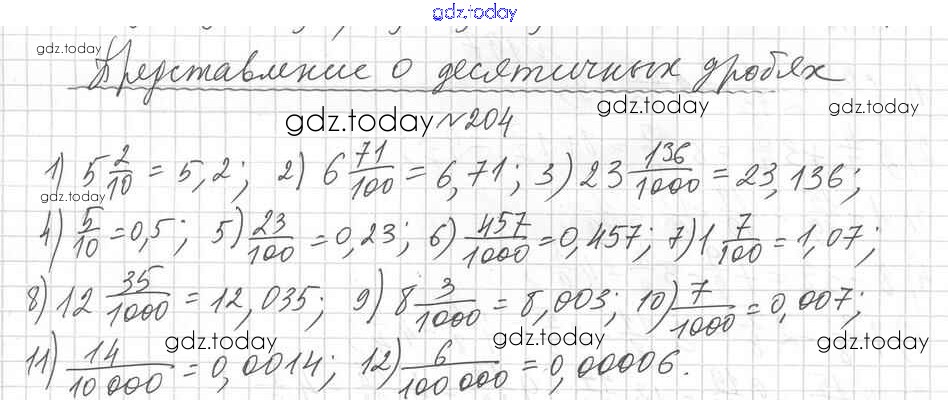 gdz.today
gdz.today
Представление о десятичных дробях
gdz.today gdz.today
gdz.today №204
1) 5 2/10 = 5,2; 2) 6 71/100 = 6,71; 3) 23 136/1000 = 23,136;
gdz.today
4) 5/10 = 0,5; 5) 23/100 = 0,23; 6) 457/1000 = 0,457; 7) 1 7/100 = 1,07;
gdz.today gdz.today
8) 12 35/1000 = 12,035; 9) 8 3/1000 = 8,003; 10) 7/1000 = 0,007;
gdz.today gdz.today gdz.today
11) 14/10 000 = 0,0014; 12) 6/100 000 = 0,00006.